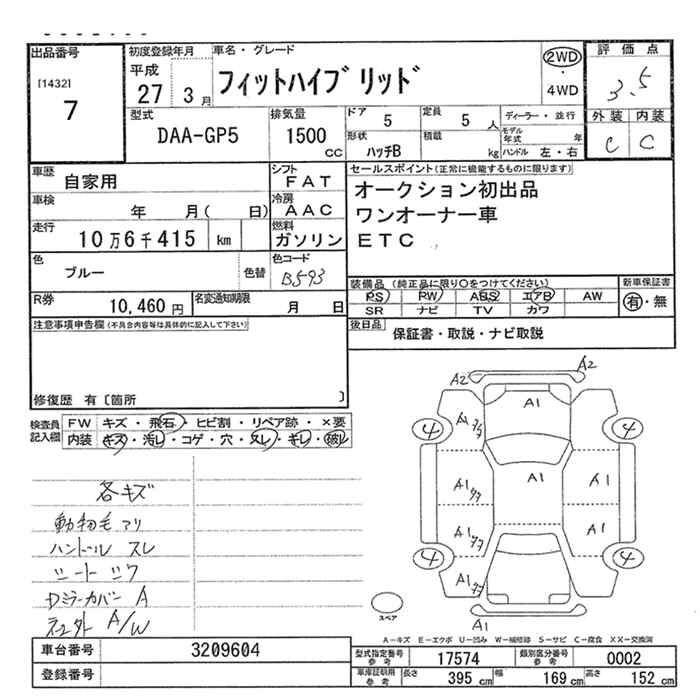 出品番号
[1432]
7
初度登録年月
平成
27 3月
車名・グレード
フィットハイブリッド
2WD
・
4WD
評価点
3.5
外装 内装
C C
型式
DAA-GP5
排気量
1500
CC
ドア 5
定員 5 人
形状 ハッチB
積載 kg
ディーラー・並行
モデル年式 年
ハンドル 左・右
車歴 自家用
シフト FAT
車検 年 月( 日)
冷房 AAC
走行 10万6千415 km
燃料 ガソリン
色 ブルー
色替
色コード B593
R券 10,460円
名変通知期限 月 日
セールスポイント(正常に機能するものに限ります)
オークション初出品
ワンオーナー車
ETC
装備品 (純正品に限り○をつけてください)
PS PW ABS エアB AW
SR ナビ TV カワ
新車保証書
有・無
後日品 保証書・取説・ナビ取説
注意事項申告欄(不具合内容等は具体的に記入して下さい)
修復歴 有〔箇所 〕
検査員記入欄
FW キズ・飛石・ヒビ割・リペア跡・×要
内装 キズ・汚レ・コゲ・穴・スレ・キレ・破レ
各キズ
動物毛アリ
ハンドル スレ
シート シワ
Dミラーカバー A
A/W
A2
A2
A1
4
4
A1
A1
A1
A1
A1
A1
A1
4
4
A1
スペア
A-キズ E-エクボ U-凹み W-補修跡 S-サビ C-腐食 XX-交換済
車台番号 3209604
登録番号
型式指定番号 参考 17574
類別区分番号 参考 0002
車庫証明用 参考 長さ 395 cm 幅 169 cm 高さ 152 cm